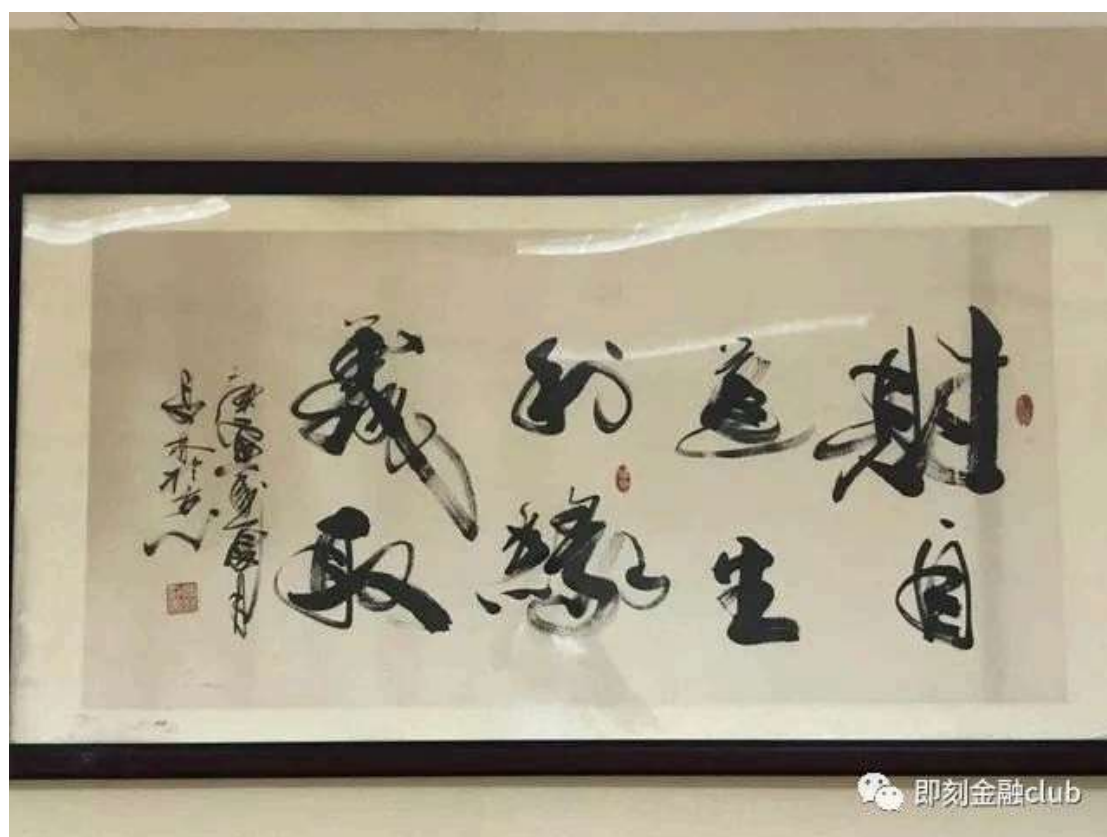 財自
道生
利緣
義取
即刻金融club